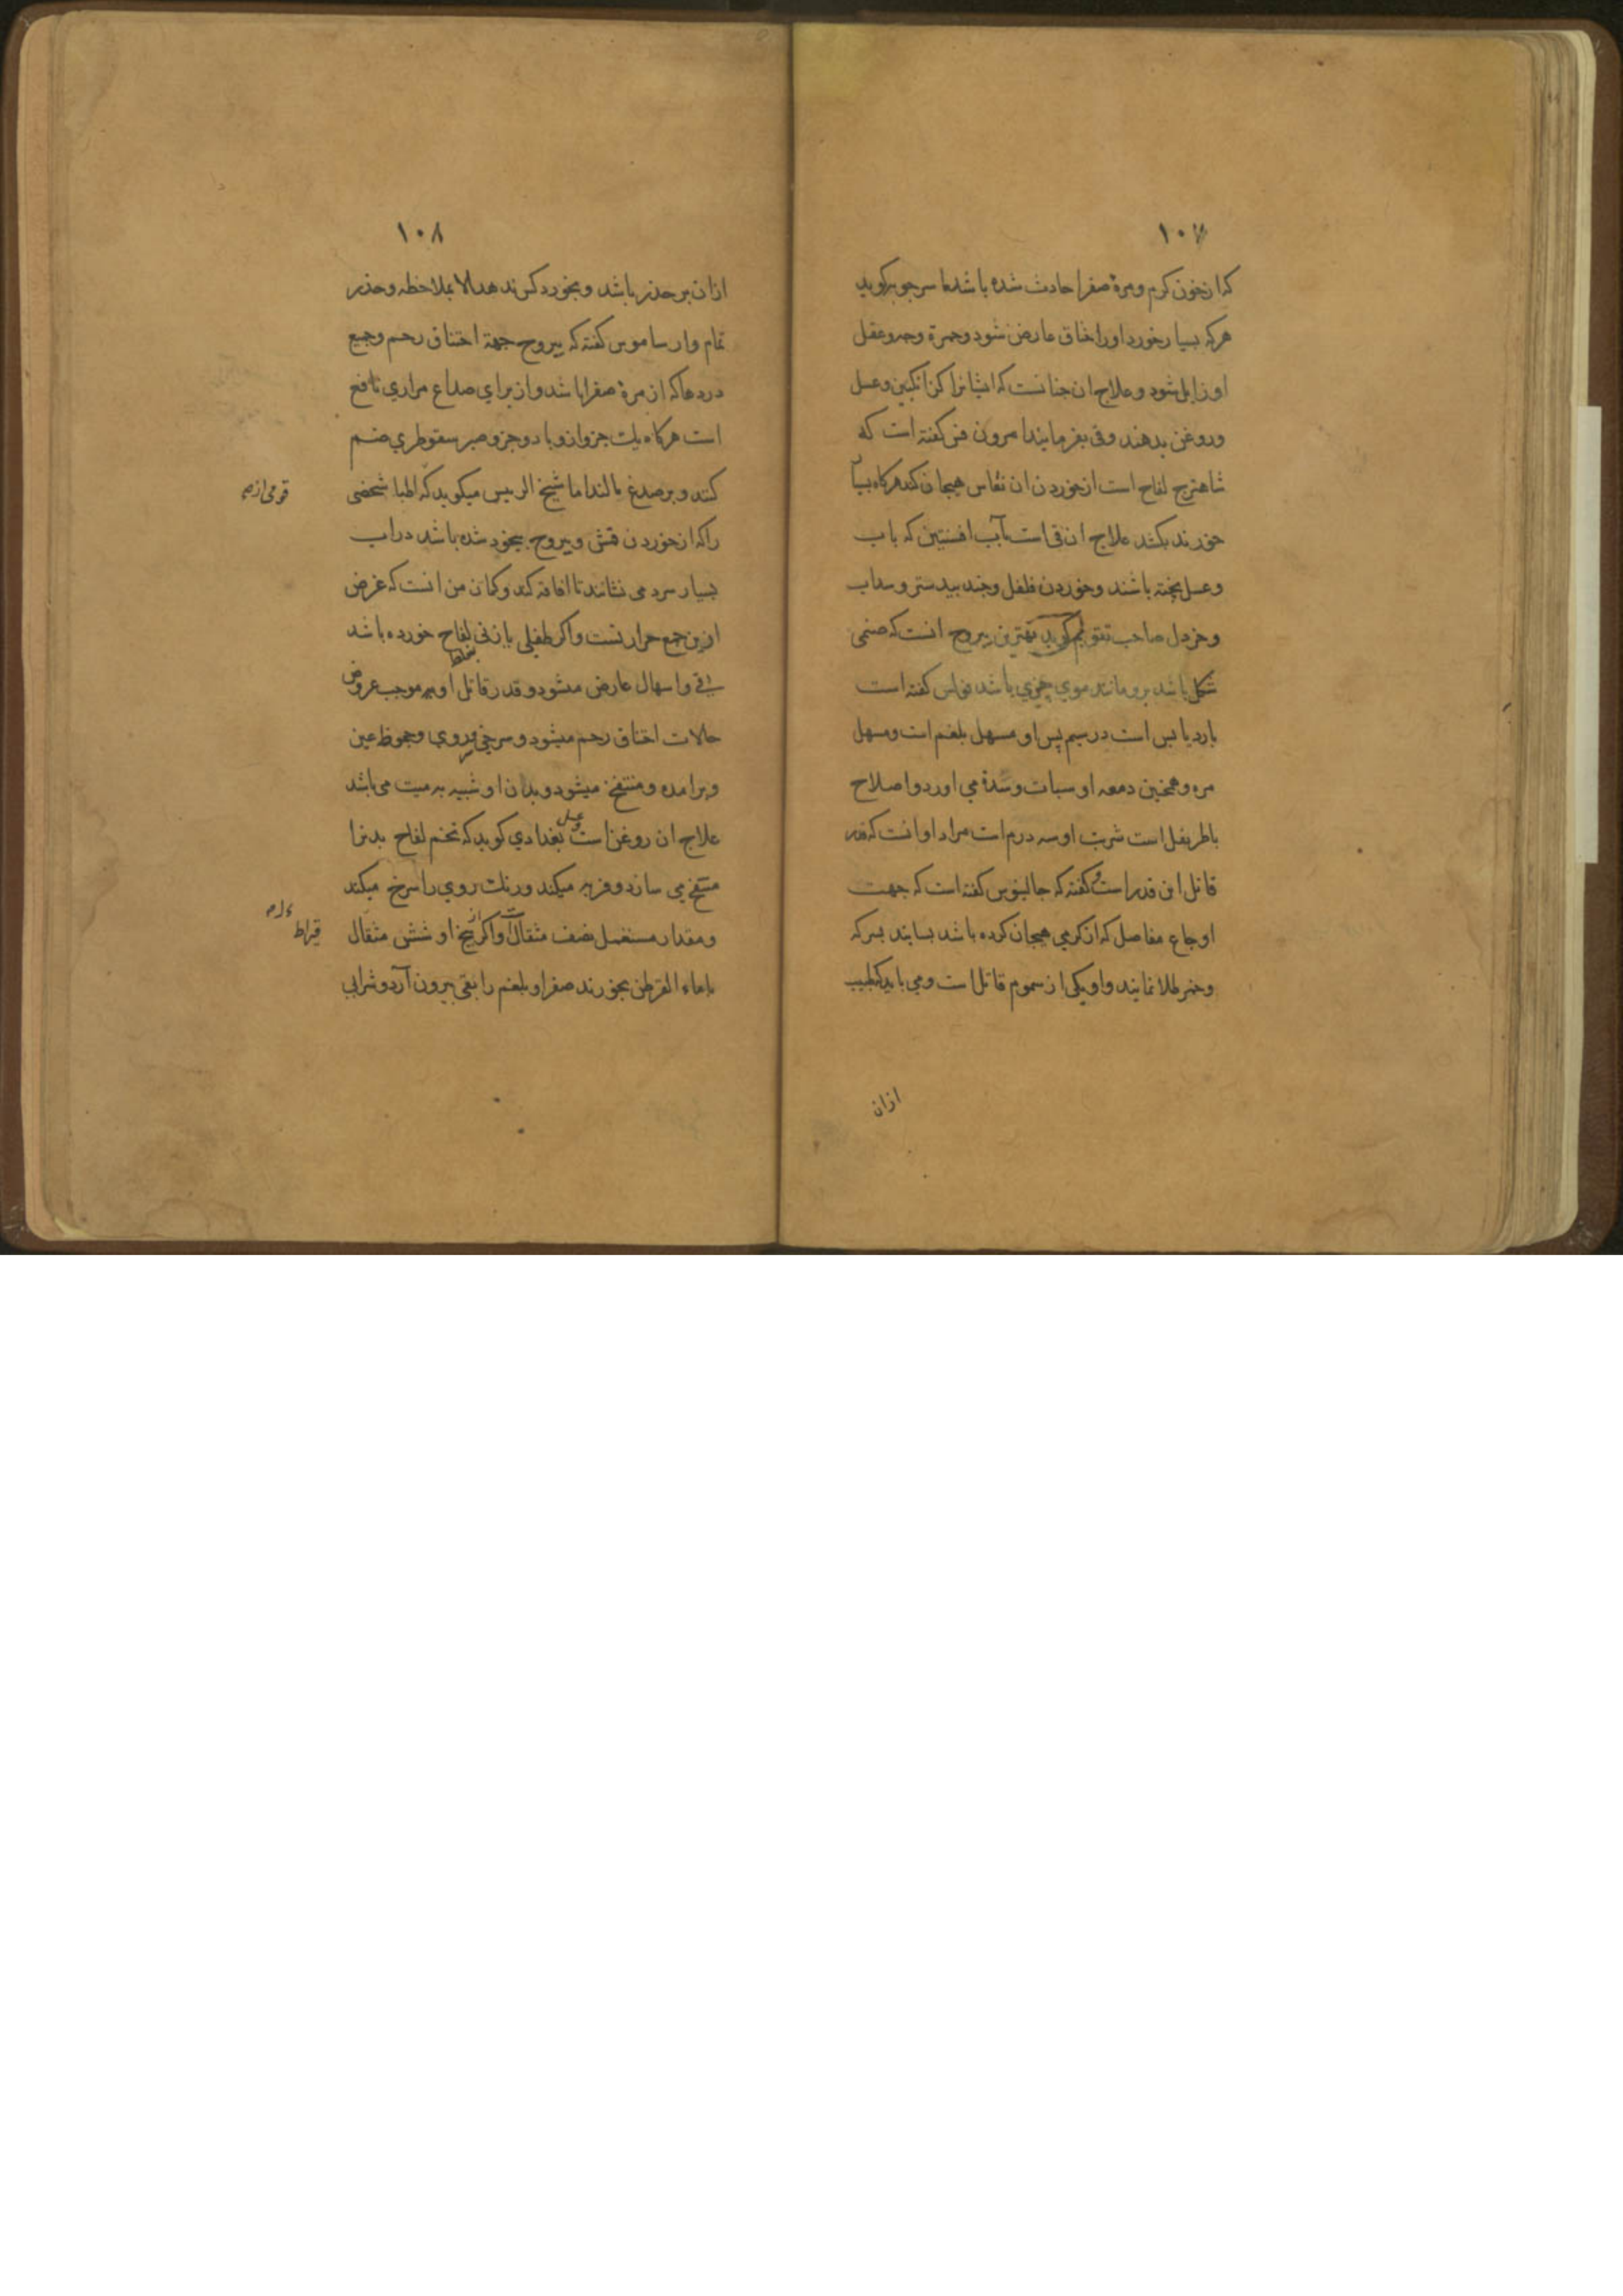 ١٠٧
که از خون کرم و مرۀ صفرا حادث شده باشد ماسرجویه کوید
هرکه بسیار خورد او را خناق عارض شود و حمرة وجه و عقل
او زایل شود و علاج ان چنانست که ایشانرا کزانکبین و عسل
و روغن بدهند و قی بفرمایند امرون فس کفته است که
شاهترج لفاح است از خوردن ان نفاس هیجان کند هرکاه بسیار
خورند بکشد علاج ان قی است بآب افسنتین که با آب
و عسل پخته باشند و خوردن فلفل و جند بیدستر و سداب
و خردل صاحب تقویم کوید بهترین یبروح انست که صنمی
شکل باشد برو مانند موی چیزی باشد فولس کفته است
بارد یابس است در سیم پس او مسهل بلغم است و مسهل
مره و همچنین دمعه او سبات و سدۀ می اورد و اصلاح
باطریفل است شربت او سه درم است مراد او انست که قدر
قاتل این قدر است و کفته که جالینوس کفته است که جهت
اوجاع مفاصل که از کرمی هیجان کرده باشد بسایند بسرکه
و خمر طلا نمایند و او یکی از سموم قاتل است و می باید که طبیب
ازان
١٠٨
ازان بر حذر باشد و بخورد کس ندهد الا بملاحظه و حذر
تمام وارساموس کفته که یبروح جهة اختناق رحم و جمیع
دردها که از مرۀ صفرا باشد و از برای صداع مراری نافع
است هرکاه یک جزو ازو با دو جزو صبر سقوطری ضم
کنند و بر صدغ مالند اما شیخ الرییس میکوید که اطبا شخصی
قومی ازم
را که از خوردن قش و یبروح بیخود شده باشد در اب
بسیار سرد می نشانند تا افاقه کند و کمان من انست که غرض
ازین جمع حرارتست و اکر طفلی یا زنی لفاح بغلط خورده باشد
بر قی و اسهال عارض میشود و قدر قاتل او بر موجب عروض
حالات اختناق رحم میشود و سرخی روی و جحوظ عین
و برامده و منتفخ میشود و بدان او شبیه به میت می باشد
علاج ان روغن است و عسل بغدادی کوید که تخم لفاح بدنرا
منتفخ می سازد و فربه میکند و رنک روی را سرخ میکند
و مقدار مستعمل نصف مثقال است و اکر از بیخ او شش مثقال
قیراط
بماء القرطن بخورند صفرا و بلغم را بقی بیرون آرد و شرابی